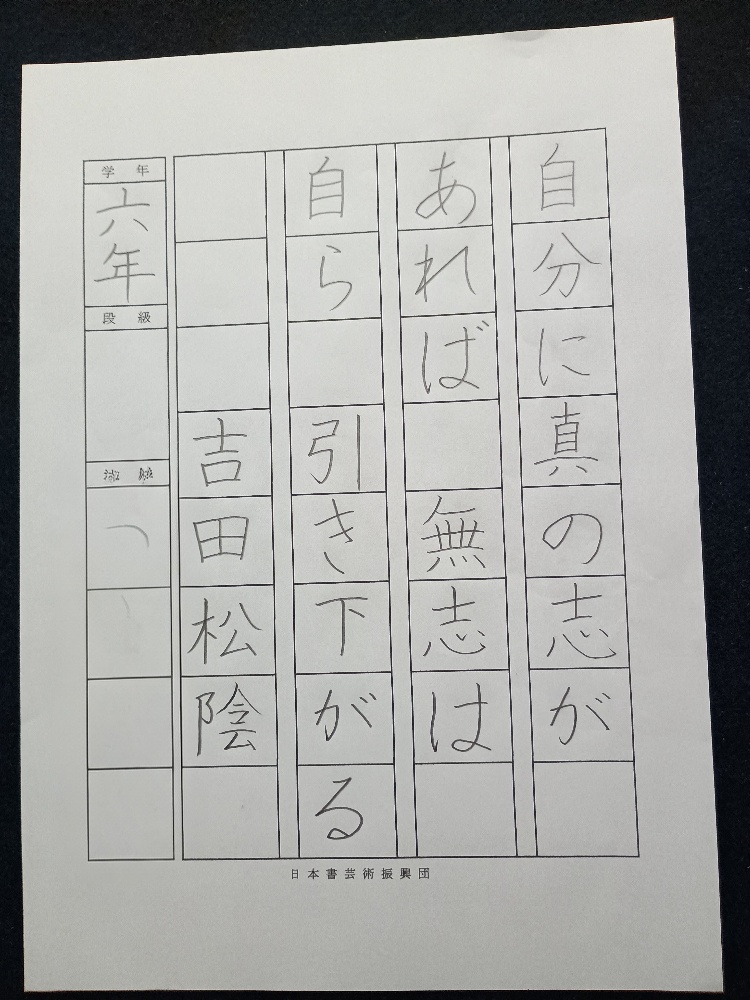 自分に真の志が
あれば 無志は
自ら 引き下がる
吉田松陰
学年
六年
段級
日本書芸術振興団